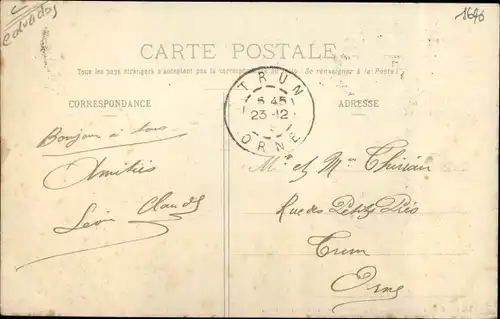 Calvados
1646
CARTE POSTALE
Tous les pays étrangers n'acceptent pas la correspondance au recto (Se renseigner à la Poste)
CORRESPONDANCE
ADRESSE
TRUN
6 45
23-12
ORNE
Bonjour à tous
Amitiés
Léon Claudel
M. et Mme
Rue des Petits Prés
Trun
Orne